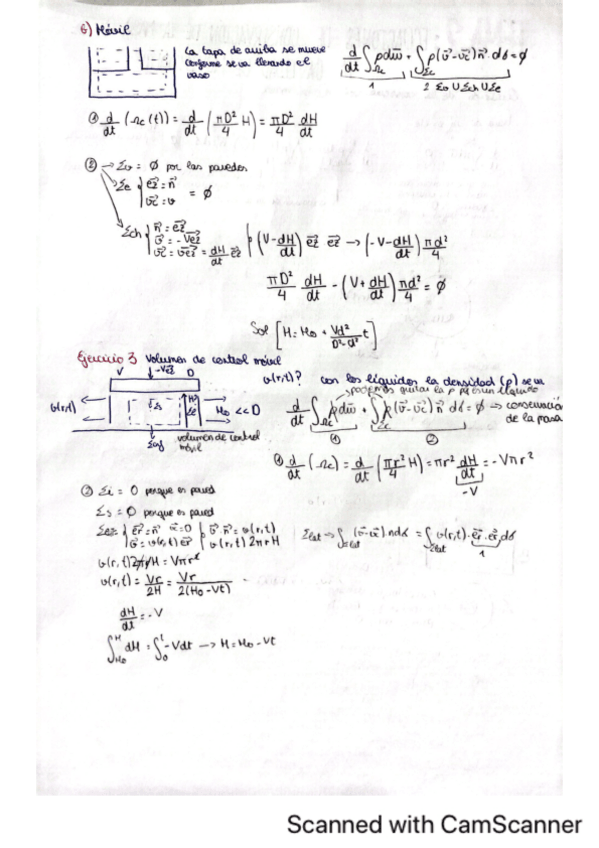 6) Móvil
La tapa de arriba se mueve
conforme se va llenando el
vaso
d/dt ∫Ωc ρdω̄ + ∫Σc ρ(v⃗-v⃗c)n⃗ dσ = ∅
1   2 Σo U Σch U Σe
① d/dt (Ωc(t)) = d/dt (πD²/4 H) = πD²/4 dH/dt
② → Σo = ∅ por las paredes
Σe { e⃗z = n⃗   v⃗c = v } = ∅
Σch { n⃗ = e⃗z   v⃗ = -Ve⃗z   v⃗c = v⃗e⃗z = dH/dt e⃗z } (V - dH/dt) e⃗z e⃗z → (-V - dH/dt) πd²/4
πD²/4 dH/dt - (V + dH/dt) πd²/4 = ∅
Sol [H = Ho + Vd²/(D²-d²) t]
Ejercicio 3 Volumen de control móvil
V   -Ve⃗z   D
v(r,t)
Ho << D
volumen de control
móvil
v(r,t)? con los líquidos la densidad (ρ) se va
podemos quitar la ρ pues es un líquido
d/dt ∫Ωc ρdω̄ + ∫Σc ρ(v⃗-v⃗c)n⃗ dσ = ∅ → conservación
de la masa
①   ②
① d/dt (Ωc) = d/dt (πr²/4 H) = πr² dH/dt = -Vπr²
-V
② Σi = 0 porque es pared
Σs = ∅ porque es pared
Σlat = { e⃗r = n⃗   v⃗c = 0   v⃗ = v(r,t) e⃗r } v⃗·n⃗ = v(r,t)   v(r,t) 2πrH
Σlat → ∫Σlat (v⃗-v⃗c) n dσ = ∫Σlat v(r,t)·e⃗r·e⃗r dσ
1
v(r,t) 2πrH = Vπr²
v(r,t) = Vr/2H = Vr/2(Ho-Vt)
dH/dt = -V
∫Ho^H dH = ∫0^t -Vdt → H = Ho - Vt
Scanned with CamScanner